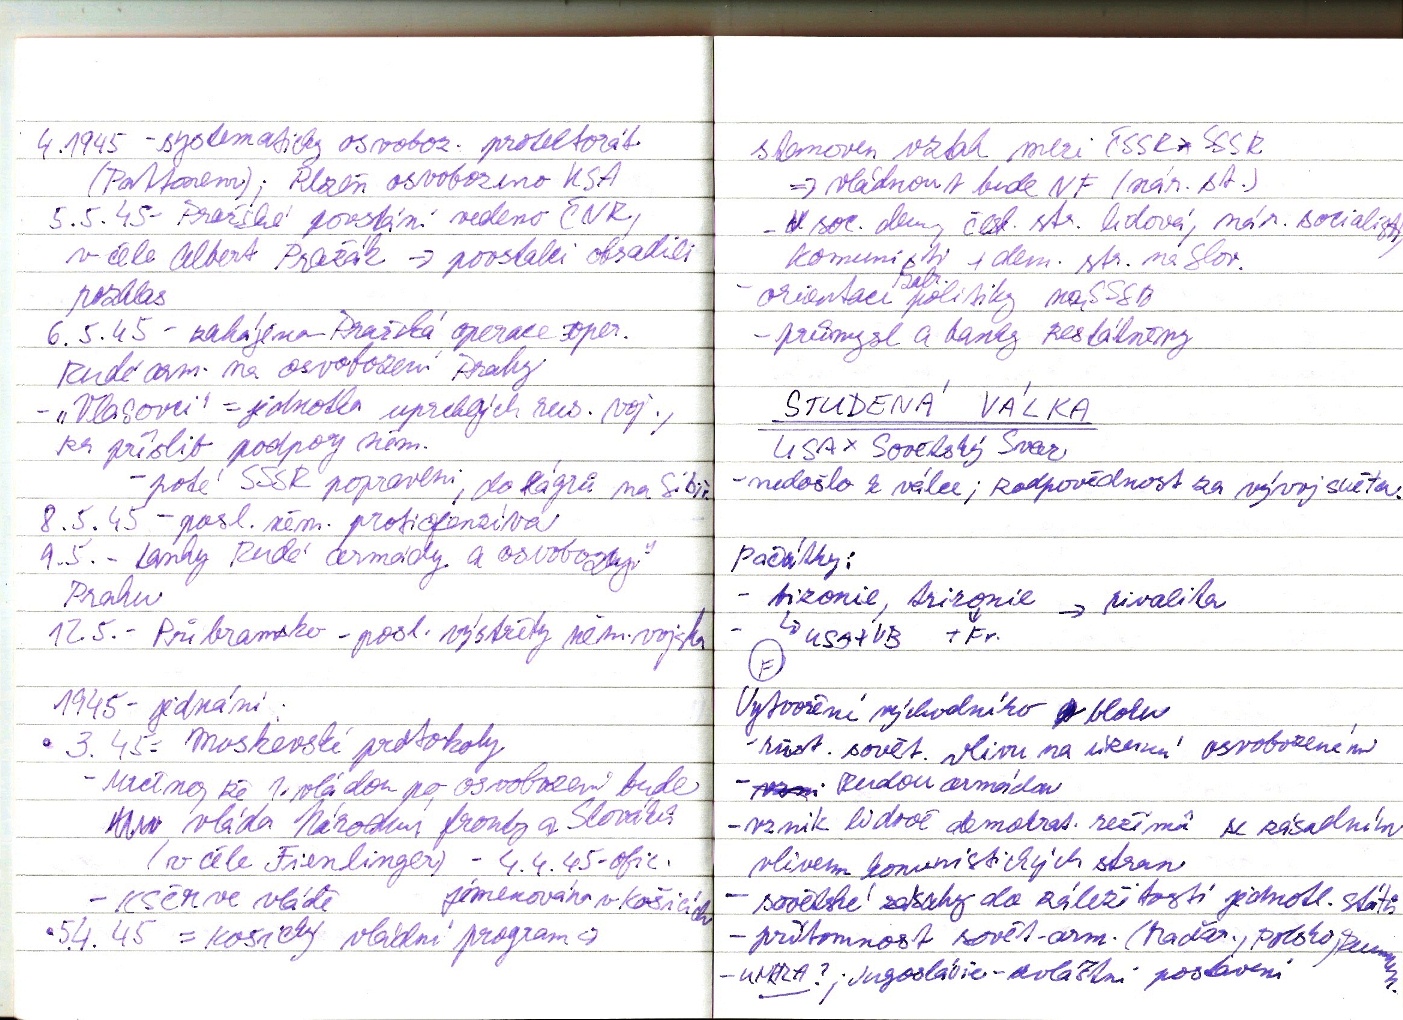 4.1945 - systematicky osvoboz. protektorát
(Pattonem); Plzeň osvobozena USA
5.5.45 - Pražské povstání vedeno ČNR,
v čele Albert Pražák → povstalci obsadili
rozhlas
6.5.45 - zahájena Pražská operace = oper.
Rudé arm. na osvobození Prahy
- "Vlasovci" = jednotka uprchlých rus. voj.,
za příslib podpory něm.
- poté SSSR popraveni, do lágrů na Sibiř
8.5.45 - posl. něm. protiofenziva
9.5. - tanky Rudé armády a osvobozují"
Prahu
12.5. - Příbramsko - posl. výstřely něm. vojska
1945 - jednání
• 3.45 - Moskevské protokoly
- určeno, že 1. vládou po osvobození bude
vláda Národní fronty a Slováků
(v čele Fierlinger) - 4.4.45 - ofic.
- KSČ ve vládě jmenována v Košicích
• 5.4.45 = Košický vládní program ⇒
stanoven vztah mezi ČSSR × SSSR
⇒ vládnout bude NF (nár. st.)
- soc. dem, čes. str. lidová, nár. socialisti,
komunisti + dem. str. na Slov.
- orientace zahr. politiky na SSSR
- průmysl a banky zestátněny
STUDENÁ VÁLKA
USA × Sovětský Svaz
- nedošlo k válce; zodpovědnost za vývoj světa.
Počátky:
- bizonie, trizonie → rivalita
- ↳ USA + VB + Fr.
F
Vytvoření východního bloku
- růst. sovět. vlivu na území osvobozeném
- Rudou armádou
- vznik lidově demokrat. režimů se zásadním
vlivem komunistických stran
- sovětské zásahy do záležitostí jednotl. států
- přítomnost sovět. arm. (Maďar., Polsko, Rumun.
- UNRRA?; Jugoslávie - zvláštní postavení